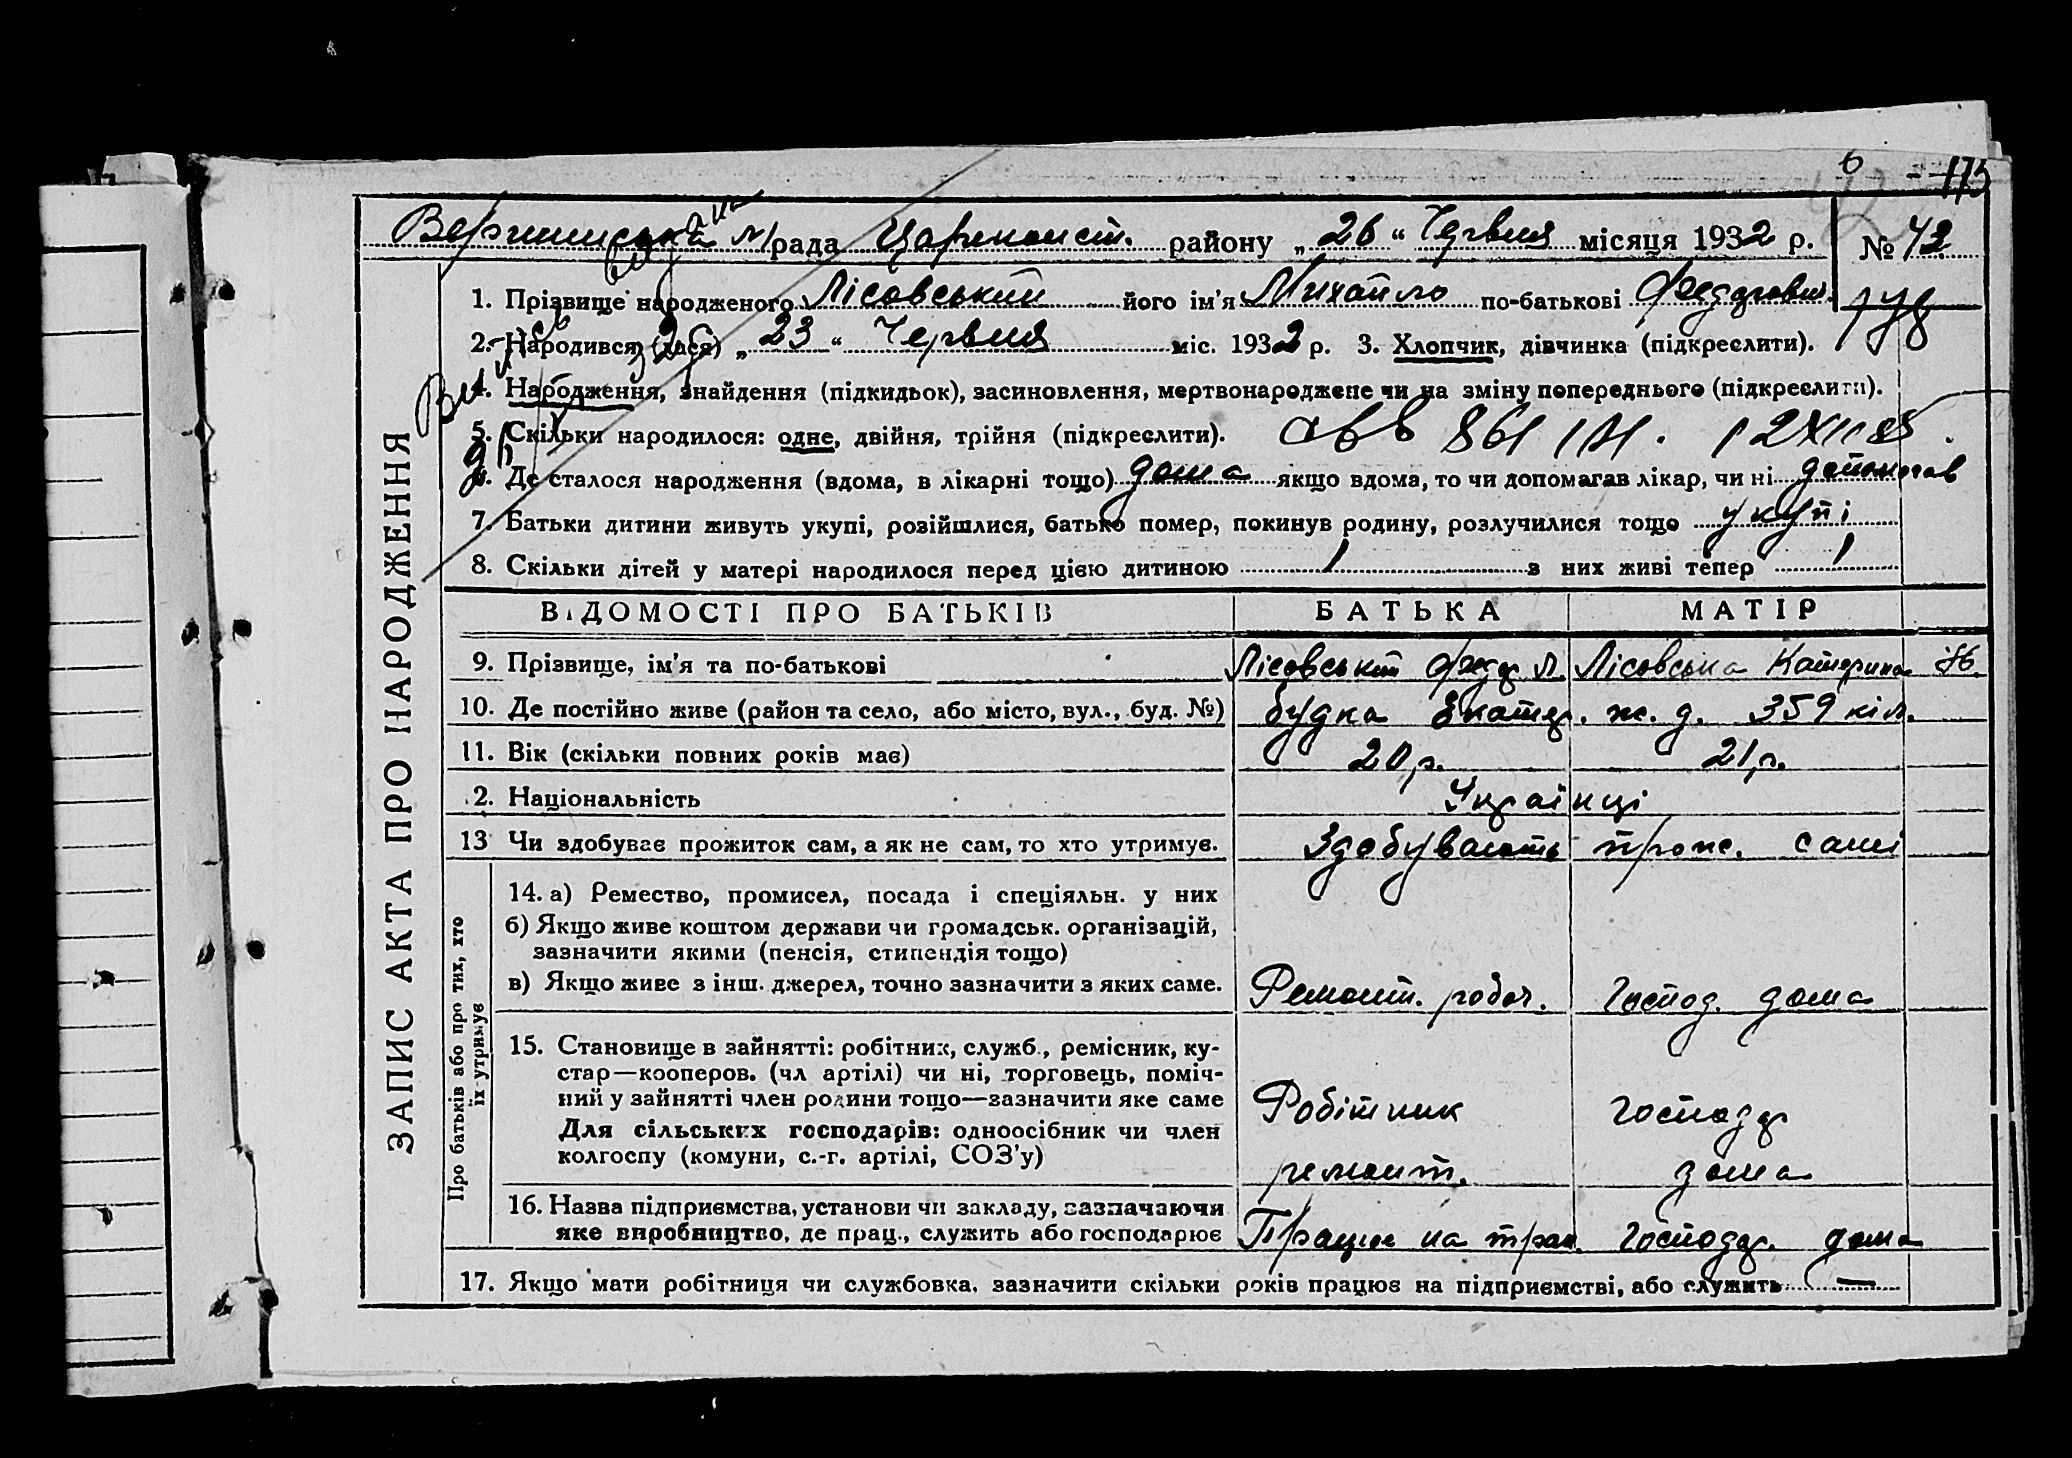 175
рада Царичанст. району „26“ Червня місяця 1932 р. № 42
1. Прізвище народженого Лісовський його ім'я Михайло по-батькові Федорович
2. Народився (лася) „23“ Червня міс. 1932 р. 3. Хлопчик, дівчинка (підкреслити).
4. Народження, знайдення (підкидьок), засиновлення, мертвонароджене чи на зміну попереднього (підкреслити).
5. Скільки народилося: одне, двійня, трійня (підкреслити).
6. Де сталося народження (вдома, в лікарні тощо) дома якщо вдома, то чи допомагав лікар, чи ні допомогав
7. Батьки дитини живуть укупі, розійшлися, батько помер, покинув родину, розлучилися тощо укупі
8. Скільки дітей у матері народилося перед цією дитиною 1 з них живі тепер 1
ЗАПИС АКТА ПРО НАРОДЖЕННЯ
ВІДОМОСТІ ПРО БАТЬКІВ БАТЬКА МАТІР
9. Прізвище, ім'я та по-батькові Лісовський Федр Л. Лісовська Катерина Як.
10. Де постійно живе (район та село, або місто, вул., буд. №) будка Екатер. ж. д. 359 кіл.
11. Вік (скільки повних років має) 20 р. 21 р.
12. Національність Українці
13 Чи здобуває прожиток сам, а як не сам, то хто утримує. Здобувають прож. самі
Про батьків або про тих, хто
їх утримує
14. а) Ремество, промисел, посада і спеціяльн. у них
б) Якщо живе коштом держави чи громадськ. організацій,
зазначити якими (пенсія, стипендія тощо)
в) Якщо живе з інш. джерел, точно зазначити з яких саме. Ремонт. робоч. Господ. дома
15. Становище в зайнятті: робітник, служб., ремісник, ку-
стар—кооперов. (чл артілі) чи ні, торговець, поміч-
ний у зайнятті член родини тощо—зазначити яке саме Робітник господар
Для сільських господарів: одноосібник чи член
колгоспу (комуни, с.-г. артілі, СОЗ'у) ремонт. дома
16. Назва підприємства, установи чи закладу, зазначаючи
яке виробництво, де прац., служить або господарює Працює на тран. Господар. дома
17. Якщо мати робітниця чи службовка, зазначити скільки років працює на підприємстві, або служить —